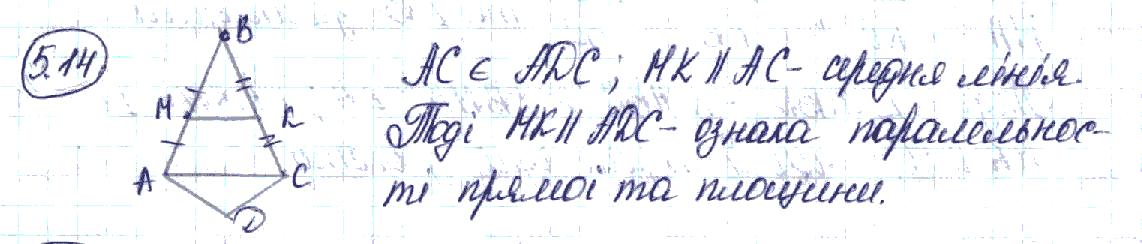 5.14
B
M
K
A
C
D
AC ∈ ADC; MK || AC - середня лінія.
Тоді MK || ADC - ознака паралельнос-
ті прямої та площини.